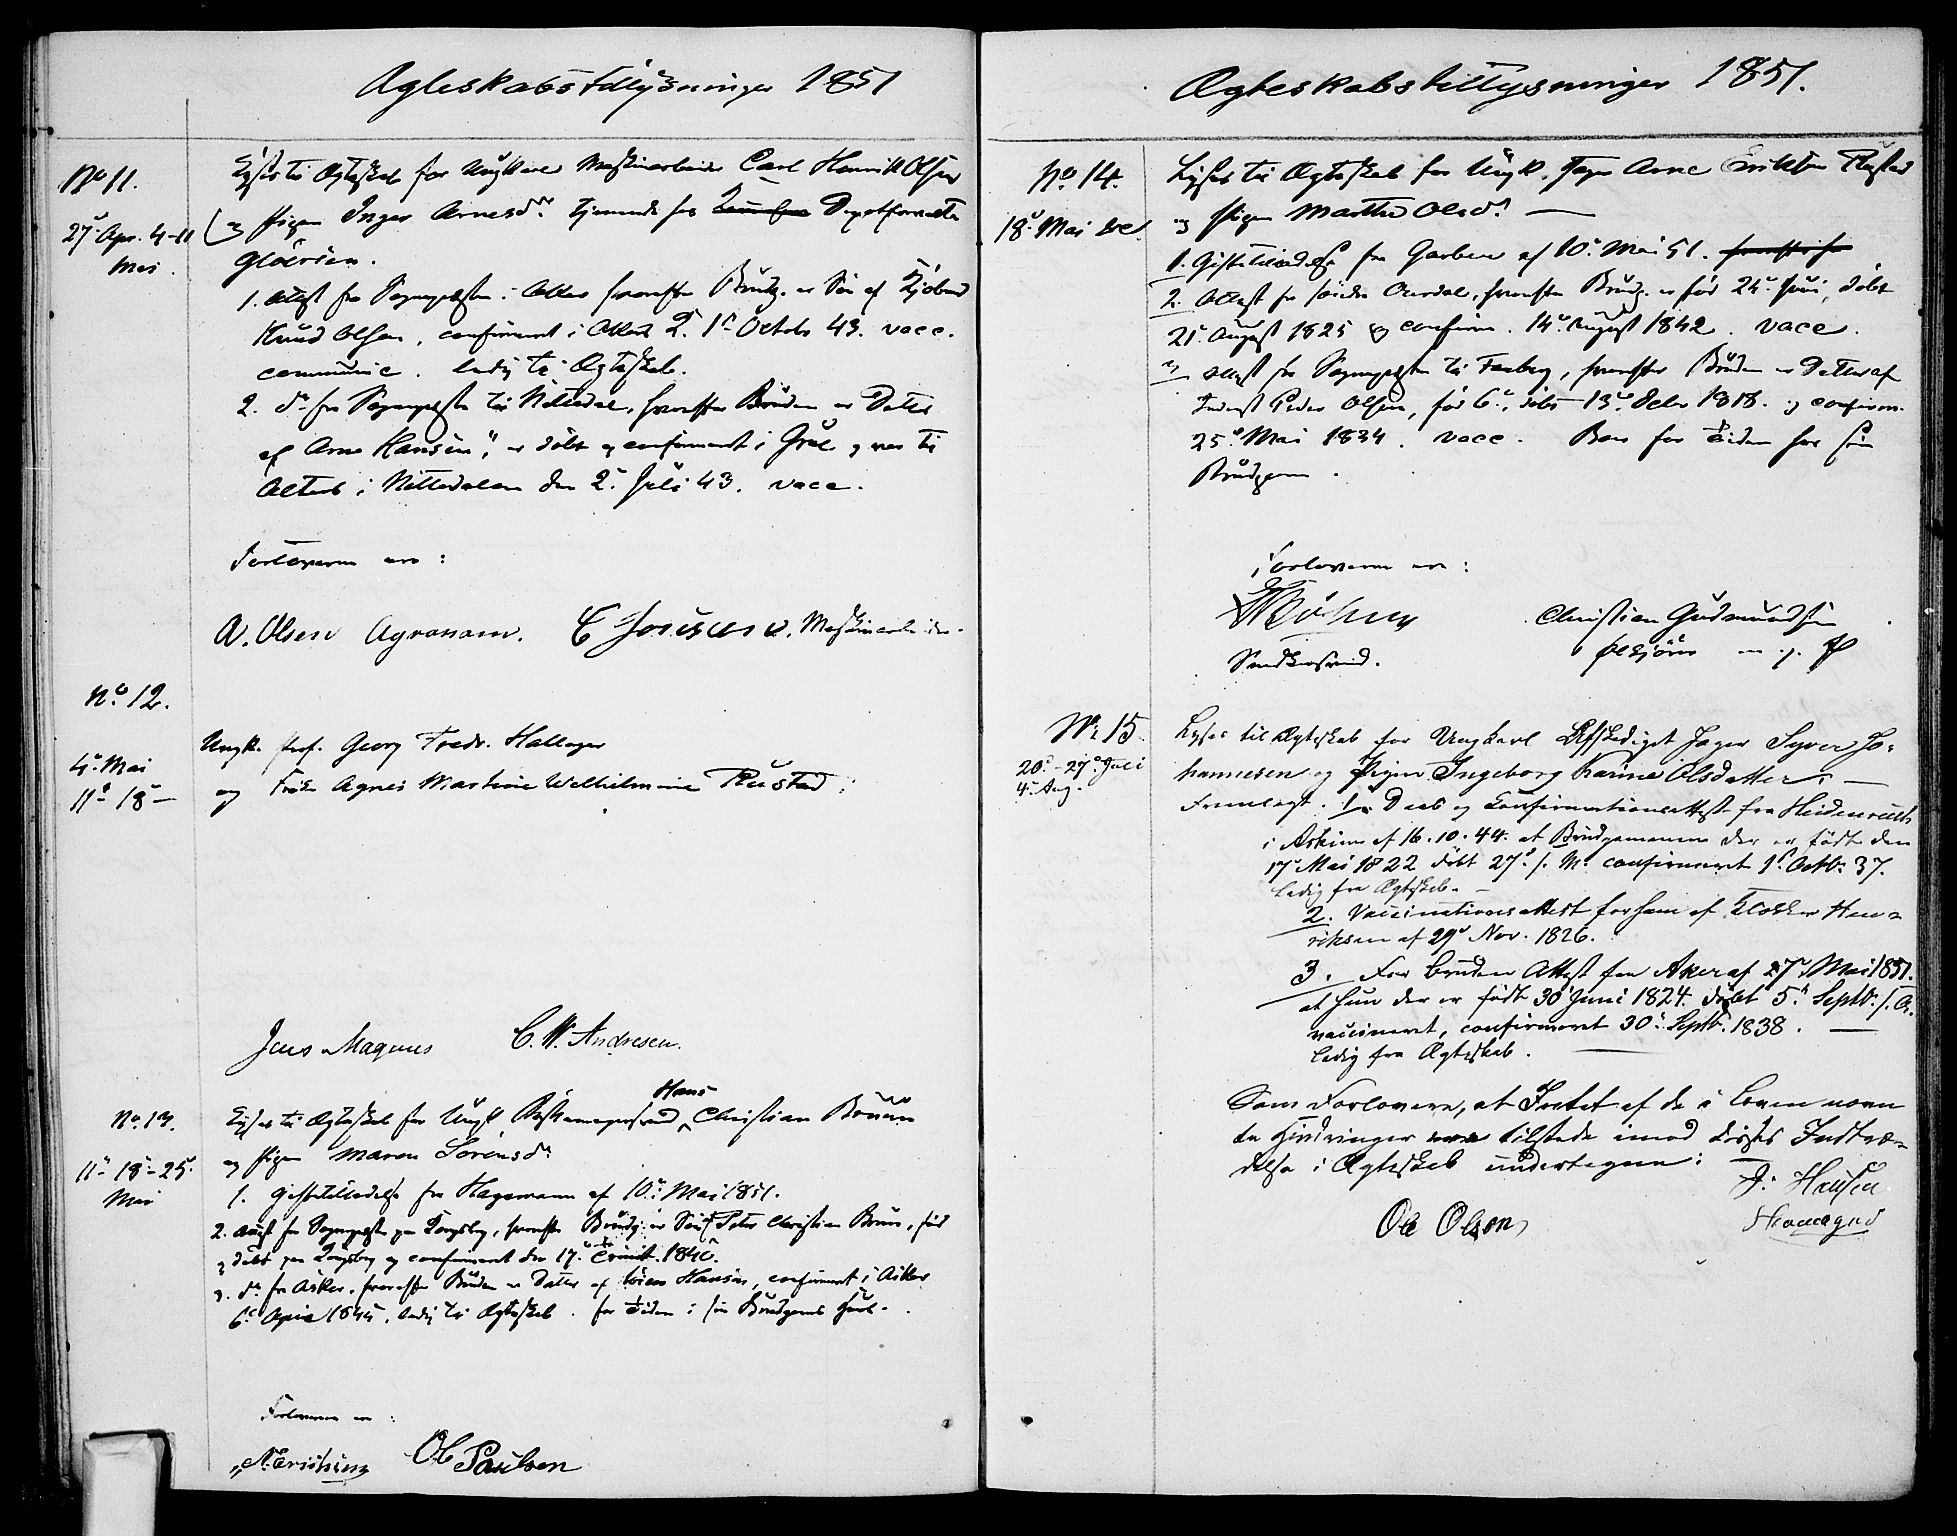 Ægteskabstillysninger 1851
No 11.
27de Apr. 4-11
Mai.
Lyses til Ægteskab for Ungkarl Maskinarbeider Carl Henrik Olsen
og Pigen Inger Arnesdr. tjenende hos Depotforvalter
Gløersen.
1. Attest fra Sognepresten i hvorefter Brudg. er Søn af
Knud Olsen, confirmeret i 1st Octobr 43. vacc.
communic. ledig til Ægteskab.
2. do fra Sognepresten til Nittedal, hvorefter Bruden er Datter
af Arne Hansen, er døbt og confirmeret i Grue og var til
Alters i Nittedalen den 2. Juli 43. vacc.
Forloverne ere:
A. Olsen Agronom. Maskinarbeider.
No. 12.
4de Mai
11te 18de
Ungk. Prof. Georg Fredr. Hallager
og Frøken Agnes Martine Wilhelmine Rustad.
Jens Magnus C. W. Andresen.
No. 13.
11te 18de 25.
Mai
Hans
Lyses til Ægteskab for Ungk. Christian Bruun
og Pigen Maren Sørensdr.
1. Giftetilladelse fra Hagemann af 10de Mai 1851.
2. Attest fra Sognepresten hvorefter Brudg. er Søn af Peter Christian Bruun, født
og døbt og confirmeret den 17de Trinit. 1840.
3. do fra Asker, hvorefter Bruden er Datter af Hansen, confirmeret i Asker
6te April 1845, ledig til Ægteskab. for Tiden i sin Brudgoms Huus.
Forloverne ere:
Ole Paulsen
Ægteskabstillysninger 1851.
No. 14.
18de Mai
Lyses til Ægteskab for Ungk. Jæger Arne Eriksen
og Pigen Marthe Olsdr.
1. Giftetilladelse fra Garben af 10de Mai 51.
2. Attest fra søndre Aurdal, hvorefter Brudg. er født 24de Juni, døbt
21de August 1825 og confirm. 14de August 1842. vacc.
3. Attest fra Sognepresten til Faaberg, hvorefter Bruden er Datter af
Peder Olsen, født 6te, døbt 13de Decbr 1818. og confirm.
25de Mai 1834. vacc. Boer for Tiden hos sin
Brudgom.
Forloverne ere:
Christian Gudmundsen
Snedkersvend.
No. 15.
20de-27de Juli
4de Aug.
Lyses til Ægteskab for Ungkarl Afskediget Jæger Syver Jo-
hannesen og Pigen Ingeborg Karine Olsdatter.
Fremlagt. 1. Daab og Confirmationsattest fra Heidenreich
i Askim af 16.10.44. at Brudgommen der er født den
17de Mai 1822 døbt 27de s. M. confirmeret 1st Octbr. 37.
ledig fra Ægteskab.
2. Vaccinationsattest for ham af Klokker Hen-
riksen af 29de Nov. 1826.
3. For Bruden Attest fra Aker af 27de Mai 1851.
at hun der er født 30 Juni 1824. døbt 5te Septbr. s. A.
vaccineret, confirmeret 30te Septbr. 1838.
ledig fra Ægteskab.
Som Forlovere, at Intet af de i Loven nævn-
te Hindringer ere tilstede imod disses Indtræ-
delse i Ægteskab undertegne:
Ole Olsen J. Hansen